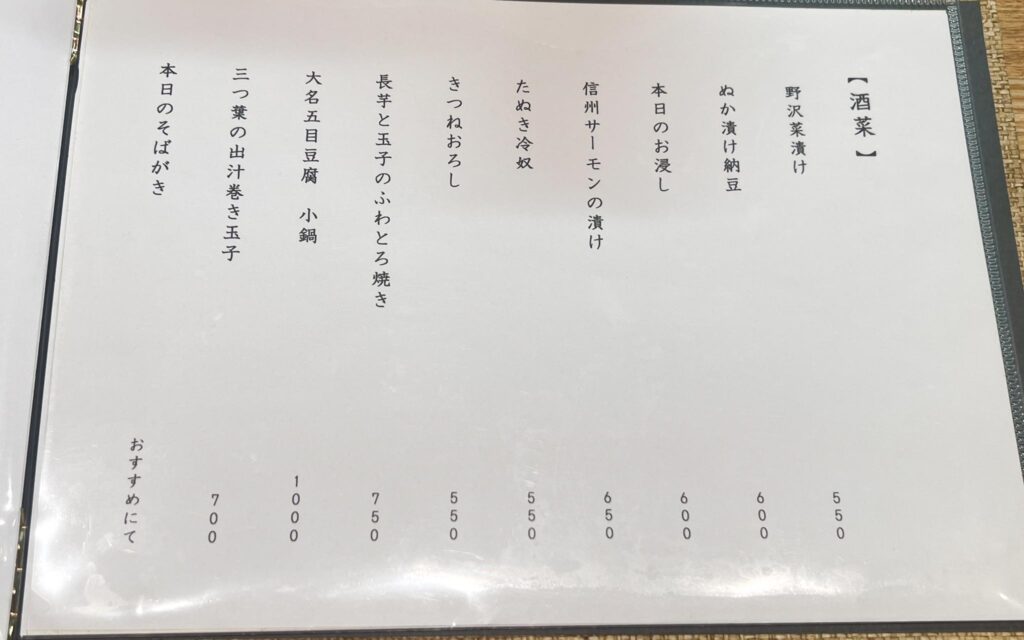 【酒菜】
野沢菜漬け 550
ぬか漬け納豆 600
本日のお浸し 600
信州サーモンの漬け 650
たぬき冷奴 550
きつねおろし 550
長芋と玉子のふわとろ焼き 750
大名五目豆腐 小鍋 1000
三つ葉の出汁巻き玉子 700
本日のそばがき おすすめにて